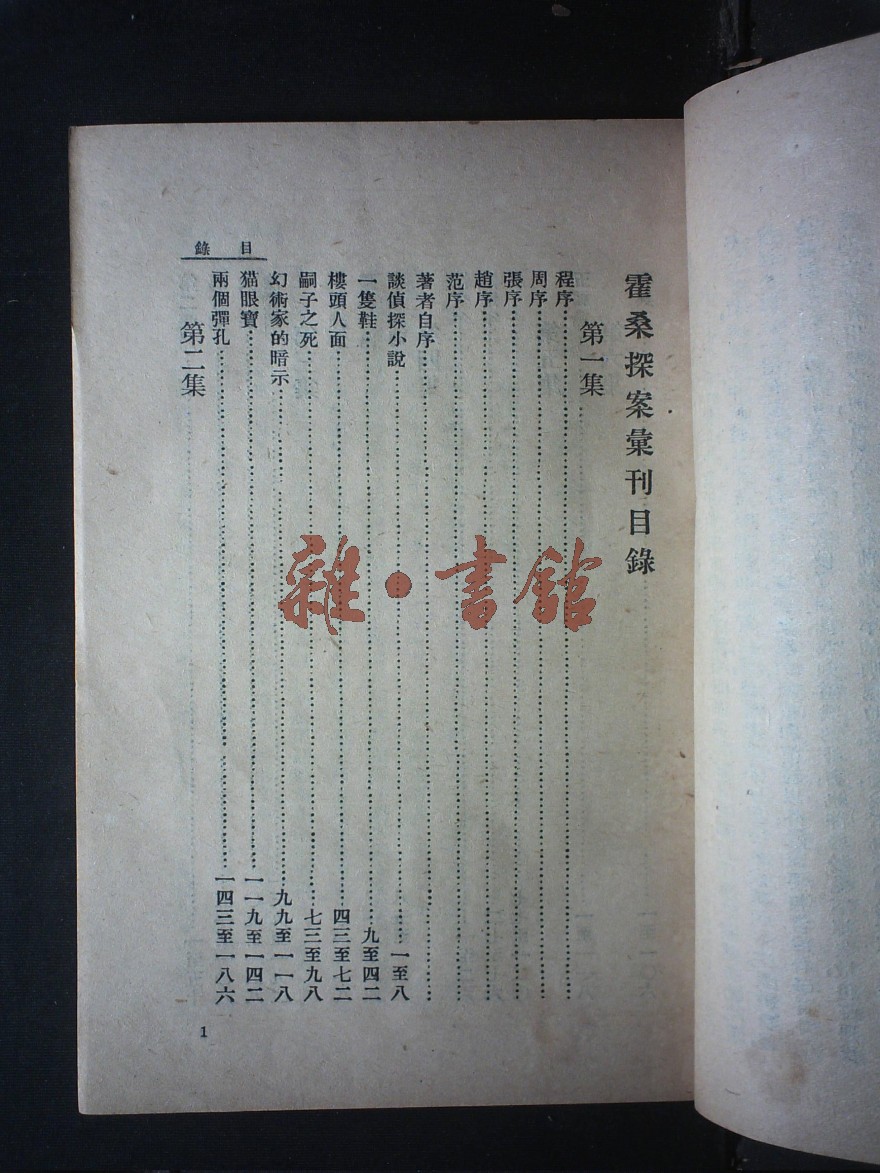 霍桑探案彙刊目錄
第一集
程序
周序
張序
趙序
范序
著者自序
談偵探小說 一至八
一隻鞋 九至四二
樓頭人面 四三至七二
嗣子之死 七三至九八
幻術家的暗示 九九至一一八
猫眼寶 一一九至一四二
兩個彈孔 一四三至一八六
第二集
目錄
1
雜·書館